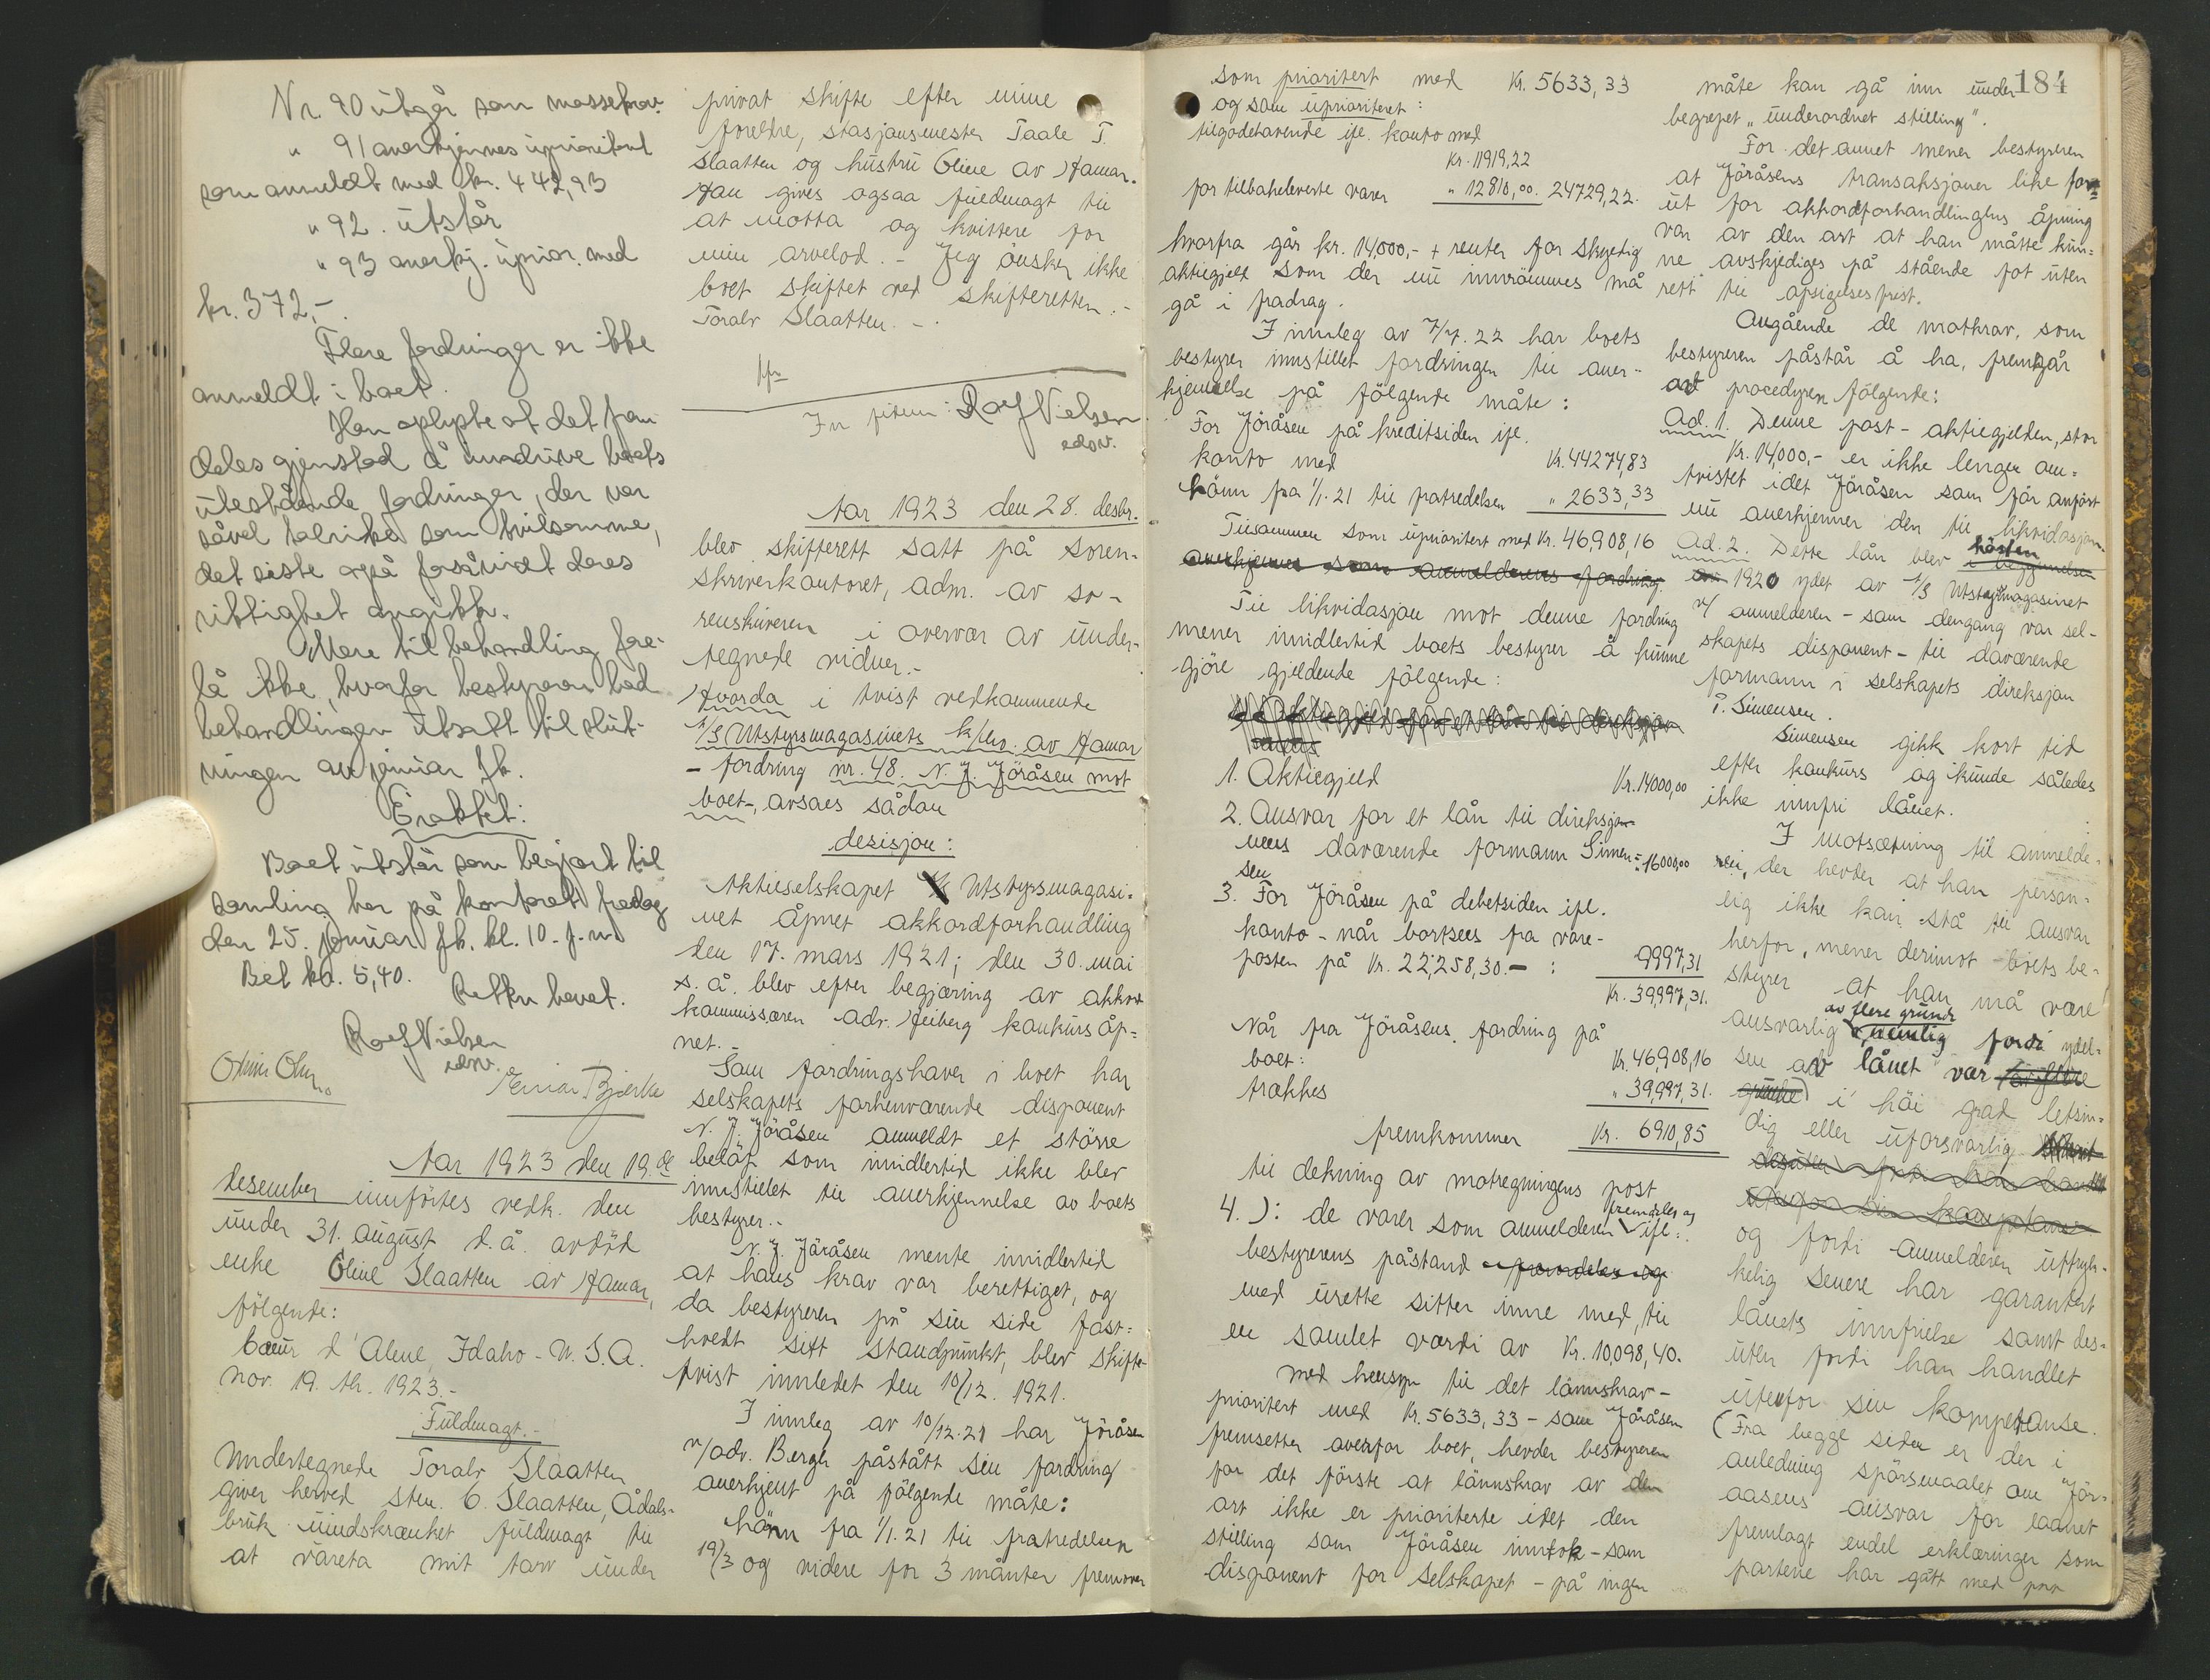 Nr. 90 utgår som massekrav.
" 91 anerkjennes uprioritert
som anmeldt med kr. 442,93
" 92. utstår
" 93 anerkj. uprior. med
kr. 372,-.
Flere fordringer er ikke
anmeldt i boet.
Han oplyste at det frem
deles gjenstod å inndrive boets
utestående fordringer, der var
såvel talrike som tvilsomme,
det siste også forsåvidt deres
riktighet angikk.
Mere til behandling fore-
lå ikke, hvorfor bestyreren bad
behandlingen utsatt til slut-
ningen av januar f.k.
Eraktet:
Boet utstår som begjært til
samling her på kontoret fredag
den 25. januar f.k. kl. 10. f.m.
Bet kr. 5,40.
Retten hevet.
Rolf Nielsen
edsv.
Einar Bjerke
Aar 1923 den 19.de
desember innförtes vedk. den
under 31. august d.å. avdöd
enke Oline Slaatten av Hamar,
fölgende:
Coeur d'Alene, Idaho - U.S.A.
nov. 19. th. 1923.-
Fuldmagt.-
Undertegnede Toralv Slaatten
giver herved stm. O. Slaatten, Ådals-
bruk uindskrænket fuldmagt til
at vareta mit tarv under
privat skifte efter mine
foreldre, stasjonsmester Taale T.
Slaatten og hustru Oline av Hamar.
Han gives ogsaa fuldmagt til
at motta og kvittere for
min arvelod. - Jeg önsker ikke
boet skiftet ved skifteretten. -
Toralv Slaatten. -.
In fidem: Rolf Nielsen
edsv.
Aar 1923 den 28. desbr.
blev skifterett satt på soren-
skriverkontoret, adm. av so-
renskriveren i overvær av under-
tegnede vidner.-
Hvorda i tvist vedkommende
A/S Utstyrsmagasinets k/bo. av Hamar
- fordring nr. 48. N. J. Jöråsen mot
boet -, avsaes sådan
desisjon:
Aktieselskapet Utstyrsmagasi-
net åpnet akkordforhandling
den 17. mars 1921; den 30. mai
s. å. blev efter begjæring av akkord
kommissæren adv. Heiberg konkurs åp-
net.
Som fordringshaver i boet har
selskapets forhenværende disponent
N. J. Jöråsen anmeldt et större
belöp som imidlertid ikke blev
innstillet til anerkjennelse av boets
bestyrer.-
N. J. Jöråsen mente imidlertid
at hans krav var berettiget, og
da bestyreren på sin side fast-
holdt sitt standpunkt, blev skifte-
tvist innledet den 10/12. 1921.
I innleg av 10/12.21 har Jöråsen
v/adv. Bergh påstått sin fordring
anerkjent på fölgende måte:
Lönn fra 1/1.21 til fratredelsen
19/3 og videre for 3 måneder fremover
184
som prioritert med Kr. 5633,33
og som uprioritert:
tilgodehavende ifl. konto med
Kr. 11919,22
for tilbakeleverte varer " 12810,00. 24729,22.
hvorfra går kr. 14,000,- + renter for skyldig
aktiegjeld som der nu innrömmes må
gå i fradrag.
I innleg av 7/4.22 har boets
bestyrer innstillet fordringen til aner-
kjennelse på fölgende måte:
For Jöråsen på kreditsiden ifl.
konto med Kr. 44274,83
Lönn fra 1/1.21 til fratredelsen " 2633,33
Tilsammen som uprioritert med Kr. 46,908,16
anerkjennes som anmelderens fordring.
Til likvidasjon mot denne fordring
mener imidlertid boets bestyrer å kunne
gjöre gjeldende fölgende:
1. Aktiegjeld Kr. 14000,00
2. Ansvar for et lån til direksjo-
nens daværende formann Simen- " 16000,00
sen
3. For Jöråsen på debetsiden ifl.
konto - når bortsees fra vare-
posten på Kr. 22,258,30.- : 9997,31
Kr. 39,997,31.
Når fra Jöråsens fordring på
boet: Kr. 46,908,16
trækkes " 39,997,31.
fremkommer Kr. 6910,85
til dekning av motregningens post
4.): de varer som anmelderen fremdeles og ifl.
bestyrerens påstand fremdeles og
med urette sitter inne med, til
en samlet værdi av Kr. 10,098,40.
Med hensyn til det lönnskrav -
prioritert med Kr. 5633,33 - som Jöråsen
fremsetter overfor boet, hevder bestyreren
for det förste at lönnskrav av den
art ikke er prioriterte idet den
stilling som Jöråsen inntok - som
disponent for selskapet - på ingen
måte kan gå inn under
begrepet "underordnet stilling".
For det annet mener bestyreren
at Jöråsens transaksjoner like for-
ut for akkordforhandlingens åpning
var av den art at han måtte kun-
ne avskjediges på stående fot uten
rett til opsigelsesfrist.
Angående de motkrav, som
bestyreren påstår å ha, fremgår
av procedyren fölgende:
Ad. 1. Denne post - aktiegjelden, stor
Kr. 14,000,- er ikke lenger om-
tvistet idet Jöråsen som för anfört
nu anerkjenner den til likvidasjon.
Ad. 2. Dette lån blev hösten i begynnelsen
1920 ydet av A/S Utstyrsmagasinet
v/ anmelderen - som dengang var sel-
skapets disponent - til daværende
formann i selskapets direksjon
P. Simensen.
Simensen gikk kort tid
efter konkurs og kunde således
ikke innfri lånet.
I motsætning til anmelde-
ren, der hevder at han person-
lig ikke kan stå til ansvar
herfor, mener derimot boets be-
styrer at han må være
ansvarlig av flere grunde nemlig fordi ydel-
sen av lånet var
i höi grad letsin-
dig eller uforsvarlig
og fordi anmelderen uttryk-
kelig senere har garantert
lånets innfrielse samt des-
uten fordi han handlet
utenfor sin kompetanse.
(Fra begge sider er der i
anledning spörsmaalet om Jör-
aasens ansvar for laanet
fremlagt endel erklæringer som
partene har gått med på